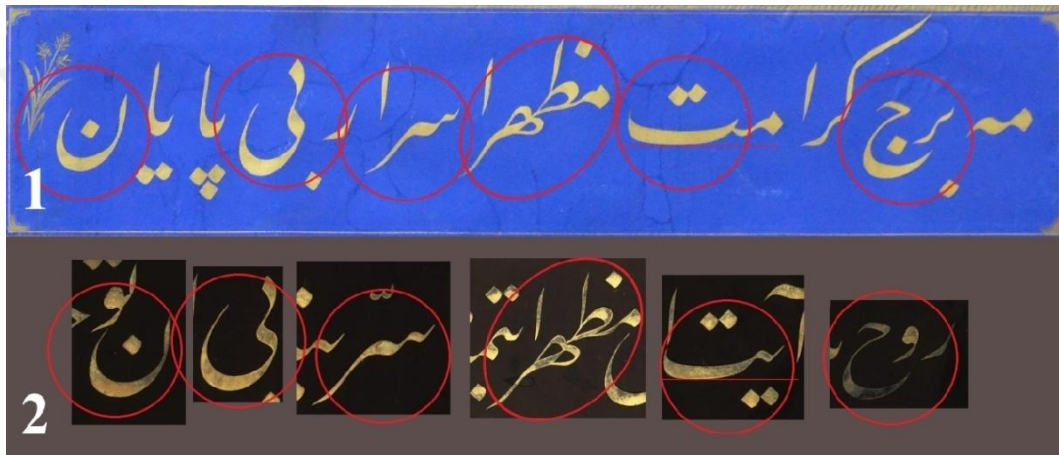 مه برج کرامت مظهر اسرار بی پایان
1
روح آیت مظهر سرّ
2